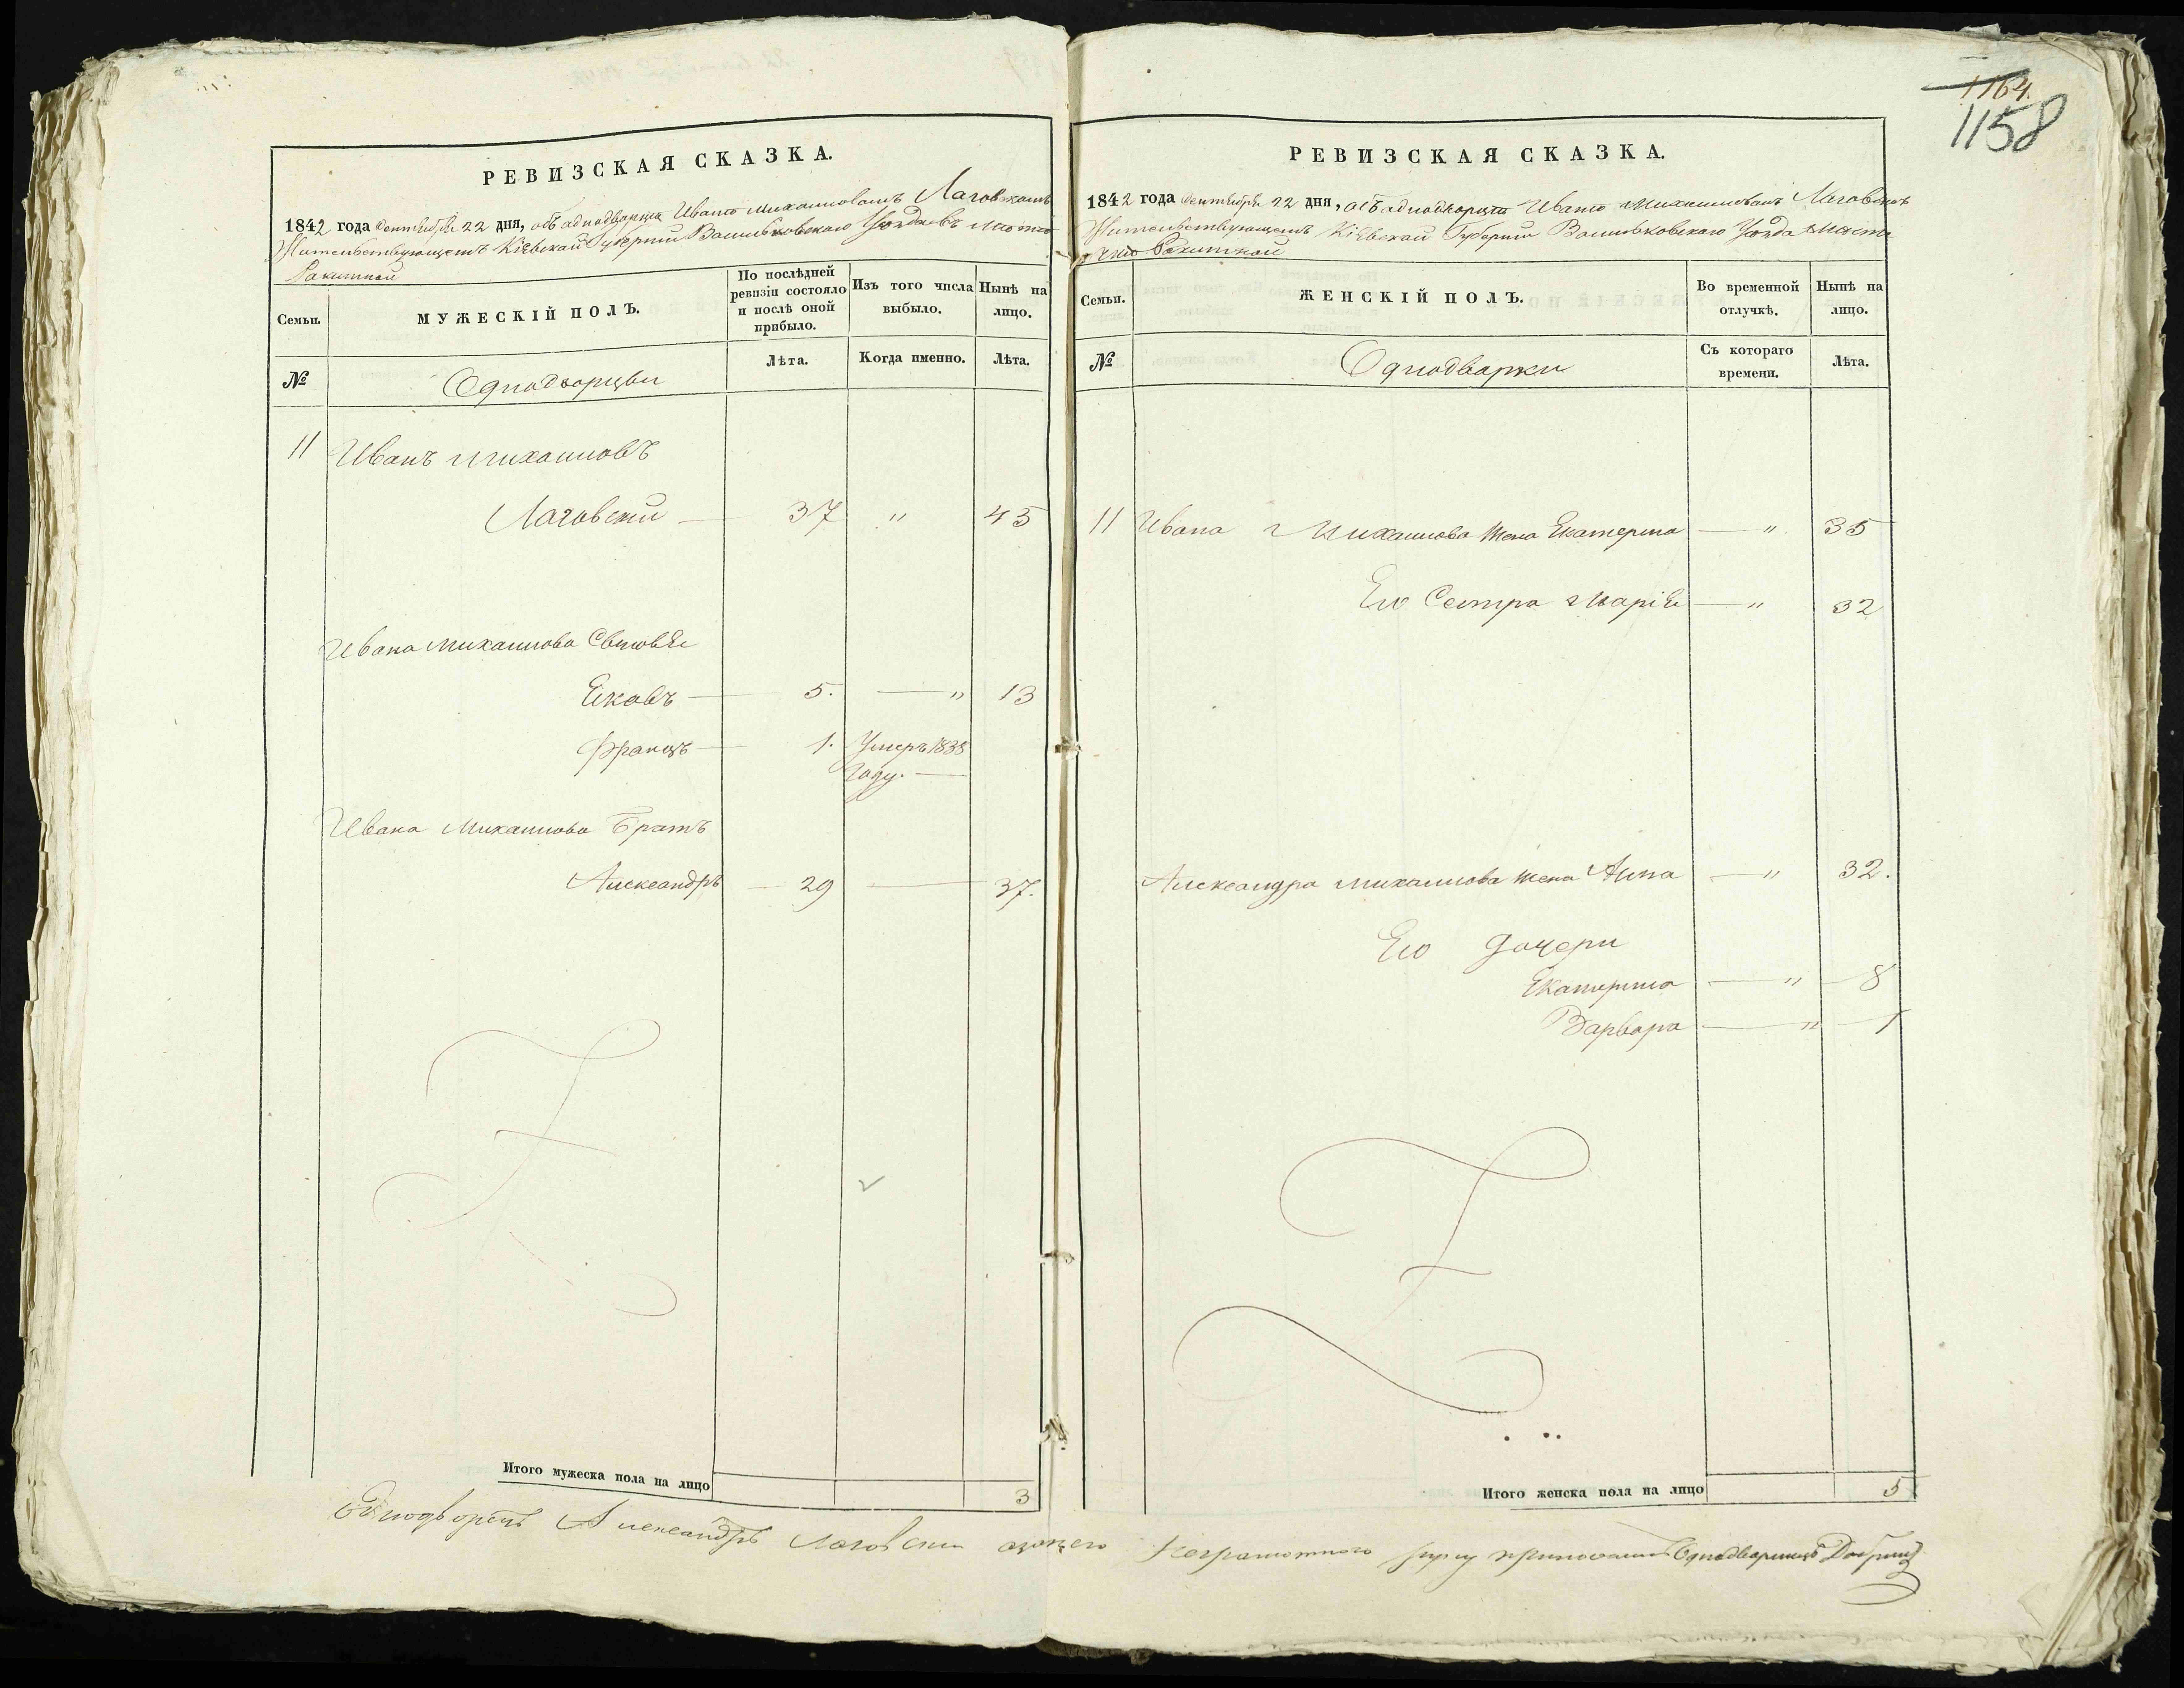 1164.
1158
РЕВИЗСКАЯ СКАЗКА.
1842 года Сентября 22 дня, объ аднадворца Ивани Михаиловамъ Лаговскомъ
Жительствующемъ Кіевскай Губерніи Василькавскаго Уѣзда въ Местѣ
Ракитнай
Семьи.
МУЖЕСКІЙ ПОЛЪ.
По послѣдней ревизіи состояло и послѣ оной прибыло.
Изъ того числа выбыло.
Нынѣ на лицо.
№
Однодворцы
Лѣта.
Когда именно.
Лѣта.
11 Иванъ Михаиловъ
Лаговский — 37 " 45
Ивана Михаилова Сыновья
Яковъ — 5. — " 13
Францъ — 1. Умеръ 1838
Году. —
Ивана Михаилова Братъ
Александръ — 29 — 37.
Итого мужеска пола на лицо 3
РЕВИЗСКАЯ СКАЗКА.
1842 года Сентября 22 дня, объ аднодворца Ивани Михаиловамъ Лаговскомъ
Жительствующемъ Кіевскай Губерніи Василькавскаго Уѣзда Месте
чко Ракитнай
Семьи.
ЖЕНСКІЙ ПОЛЪ.
Во временной отлучкѣ.
Нынѣ на лицо.
№
Однодварки
Съ котораго времени.
Лѣта.
11 Ивана Михаилова Жена Екатерина — " 35
Его Сестра Марія — " 32
Александра Михаилова Жена Анна — " 32.
Его Дочери
Екатерина — " 8
Варвара — " 1
Итого женска пола на лицо 5
Однодворецъ Александръ Лаговский а за него Неграмотного руку приложилъ Однодварецъ